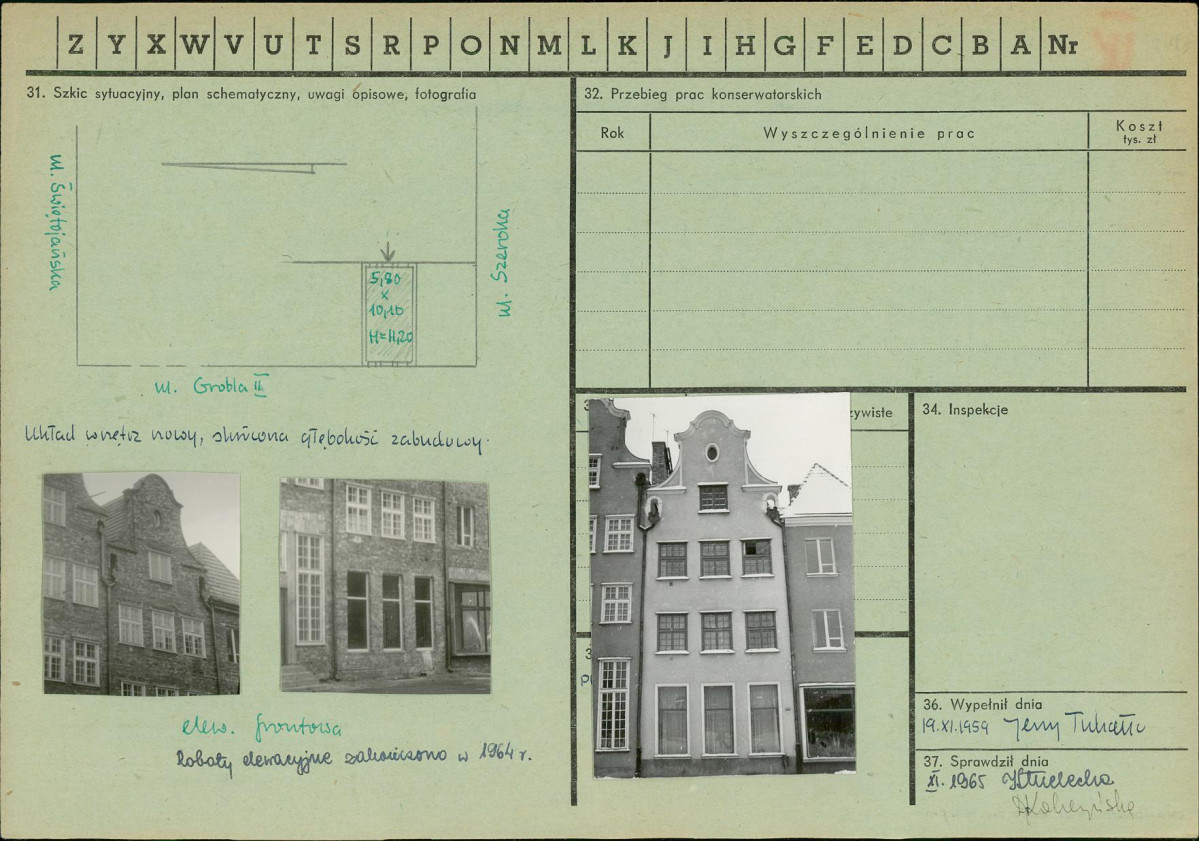 Z Y X W V U T S R P O N M L K J I H G F E D C B A Nr
31. Szkic sytuacyjny, plan schematyczny, uwagi opisowe, fotografia
ul. Świętojańska
ul. Szeroka
5,80
x
10,10
H=11,20
ul. Grobla II
Układ wnętrz nowy, skrócona głębokość zabudowy.
elew. frontowa
Roboty elewacyjne zakończono w 1964 r.
32. Przebieg prac konserwatorskich
Rok
Wyszczególnienie prac
Koszt
tys. zł
zywiste
34. Inspekcje
36. Wypełnił dnia
19.XI.1959 Jerzy
37. Sprawdził dnia
XI. 1965